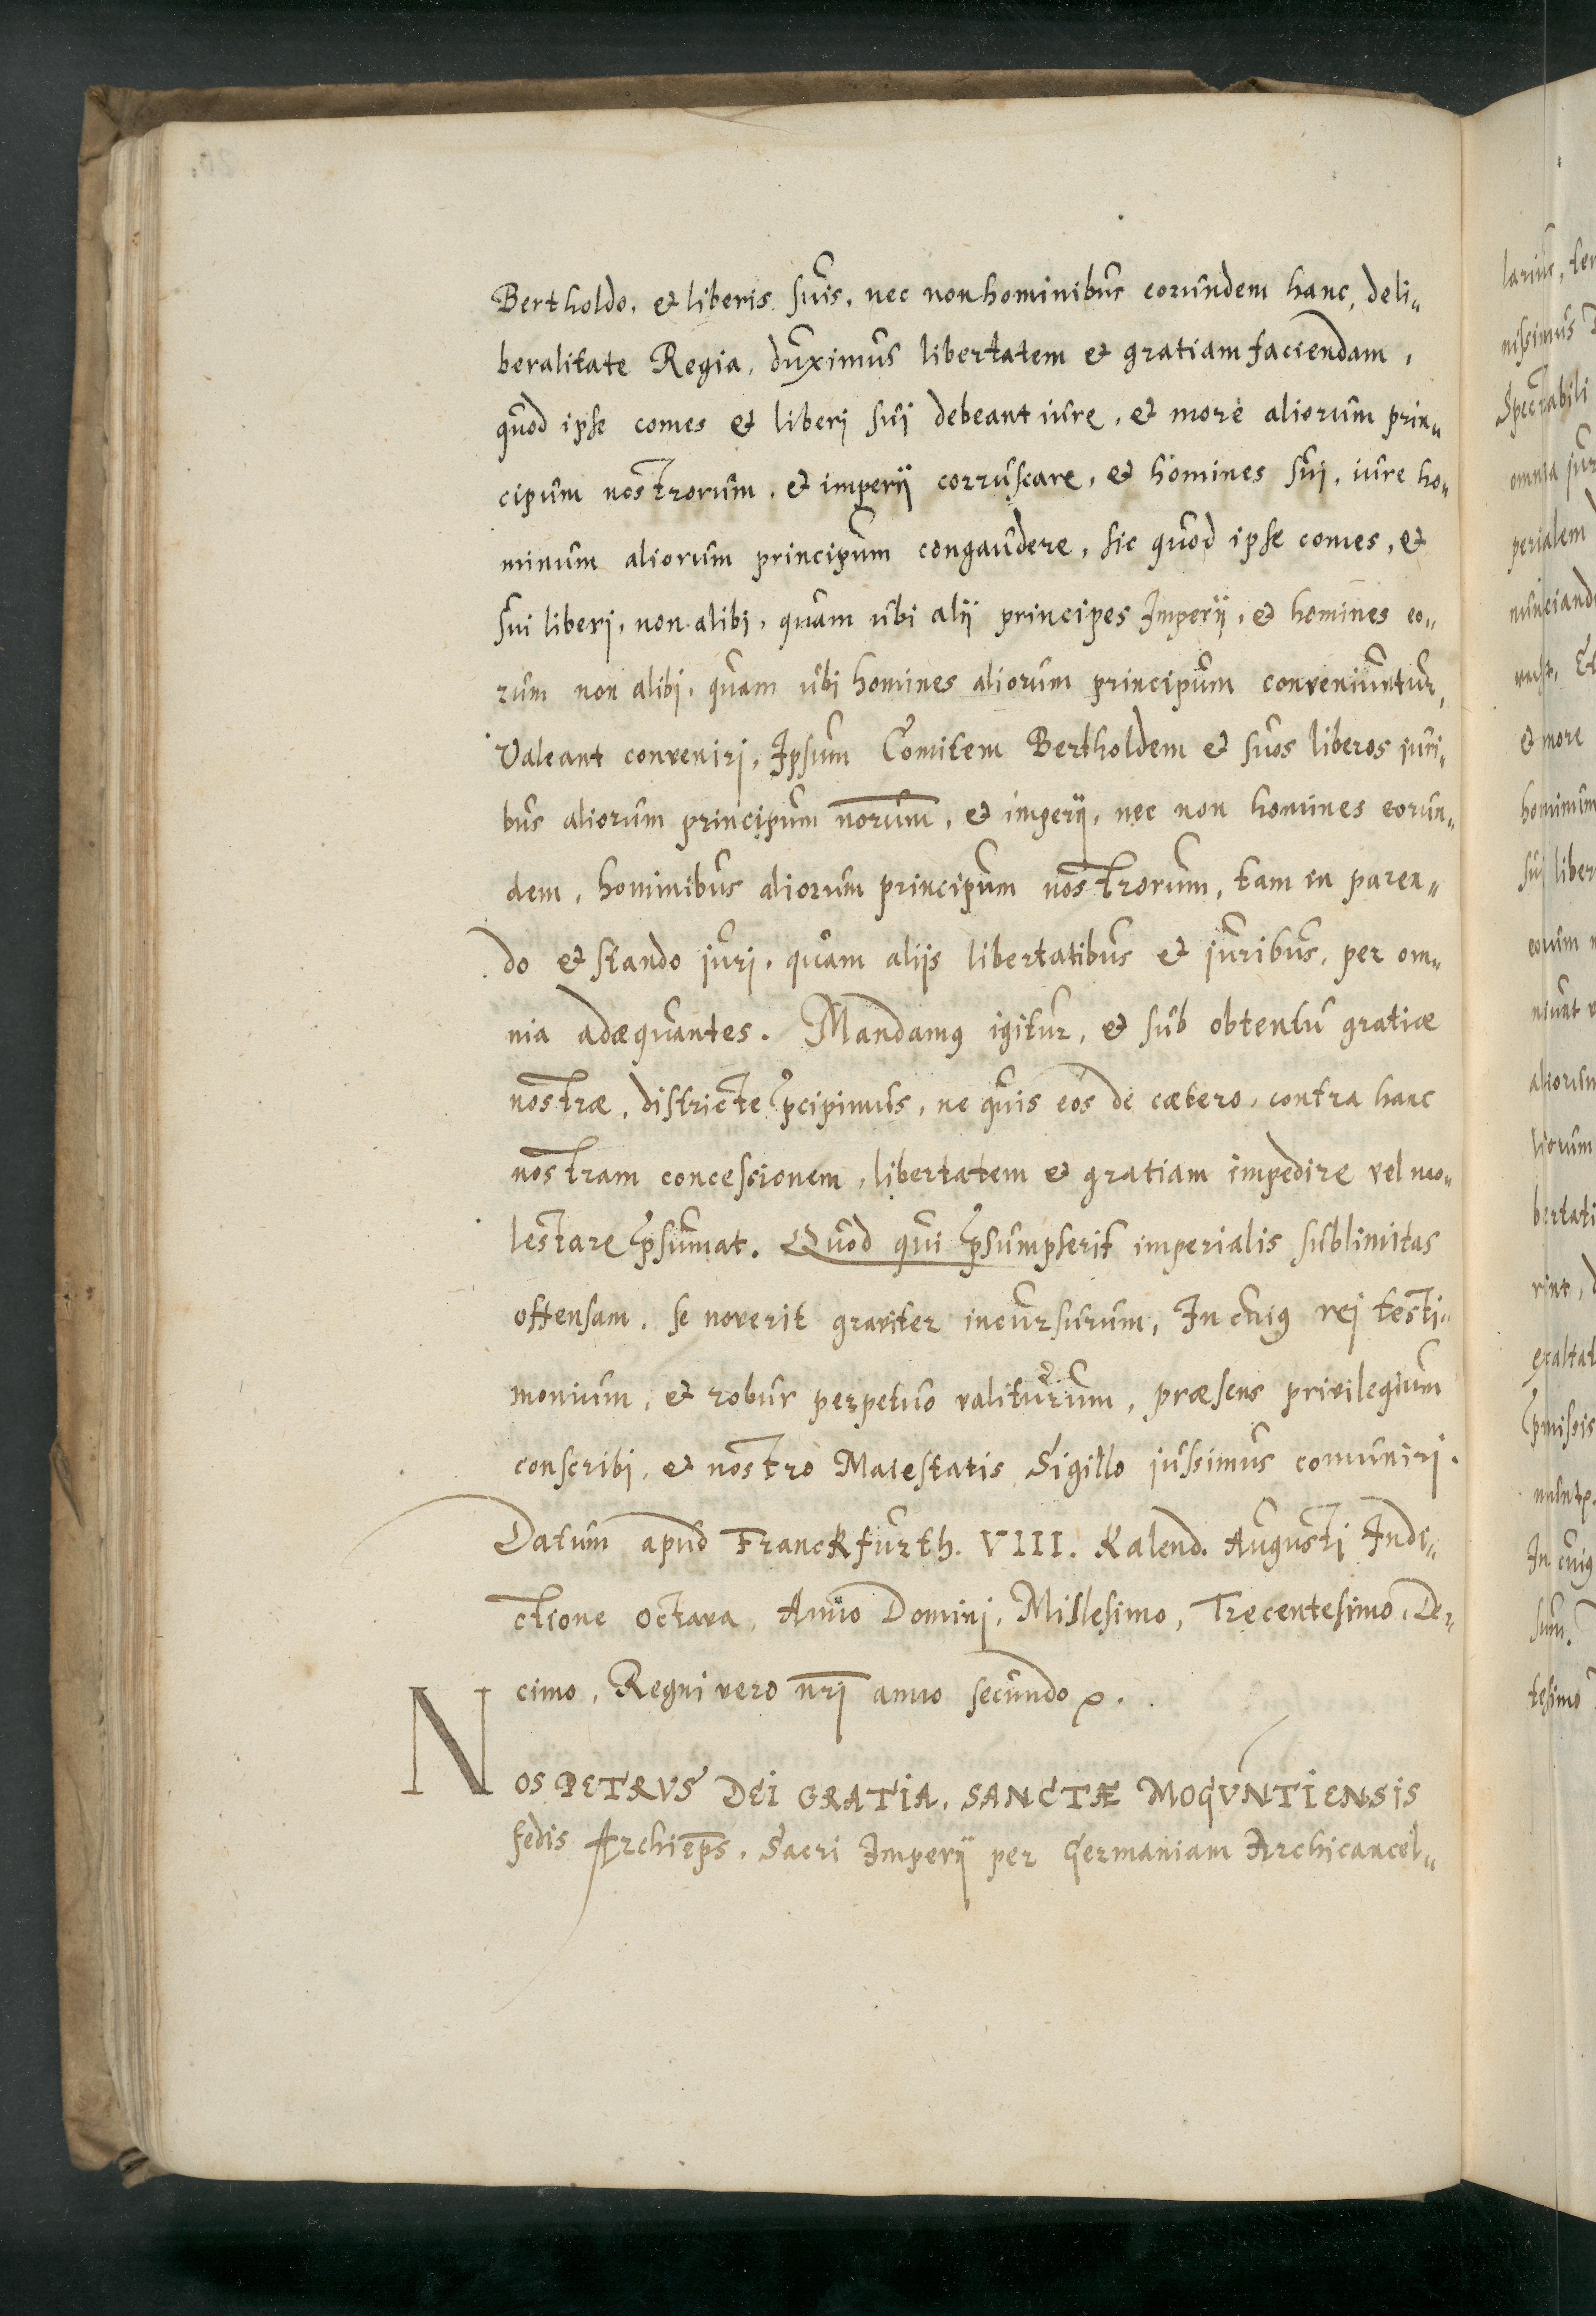 Bertholdo, et liberis suis, nec non hominibus eorundem hanc, deli„
beralitate Regia, duximus libertatem et gratiam faciendam,
quod ipse comes et liberj suj debeant iure, et more aliorum prin„
cipum nostrorum, et imperij corruscare, et homines suj, iure ho„
minum aliorum principum congaudere, sic quod ipse comes, et
sui liberj, non alibj, quam ubi alij principes Imperij, et homines eo„
rum non alibj, quam ubi homines aliorum principum conveniuntur,
Valeant convenirj, Ipsum Comitem Bertholdem et suos liberos juri„
bus aliorum principum norum̅, et imperij, nec non homines eorun„
dem, hominibus aliorum principum nostrorum, tam in paren„
do et stando jurj, quam alijs libertatibus et juribus, per om„
nia adæquantes. Mandamꝰ igitur, et sub obtentu gratiæ
nostræ, districte p̃cipimus, ne quis eos de cætero, contra hanc
nostram concessionem, libertatem et gratiam impedire vel mo„
lestare p̃sumat. Quod qui p̃sumpserit imperialis sublimitas
offensam, se noverit graviter incursurum, In cuiꝰ rej testi„
monium, et robur perpetuo valiturum, præsens privilegium
conscribi, et nostro Maiestatis Sigillo jussimus comunirj.
Datum apud Franckfurth. VIII. Kalend. Augusti Indi„
ctione octava, Anno Dominj, Millesimo, Trecentesimo, De„
cimo, Regni vero nr̅j anno secundo
NOS PETRVS DEI GRATIA, SANCTÆ MOGVNTIENSIS
sedis Archiep̅s, Sacri Imperij per Germaniam Archicancel„
larius, ten
nissimus
Spectabili
omnia jur
perialem
nunciand
et more
hominum
suj liber
eorum
aliorum
liorum
bertati
rint, d
exaltat
p̃missis
In cuiꝰ
tesimo